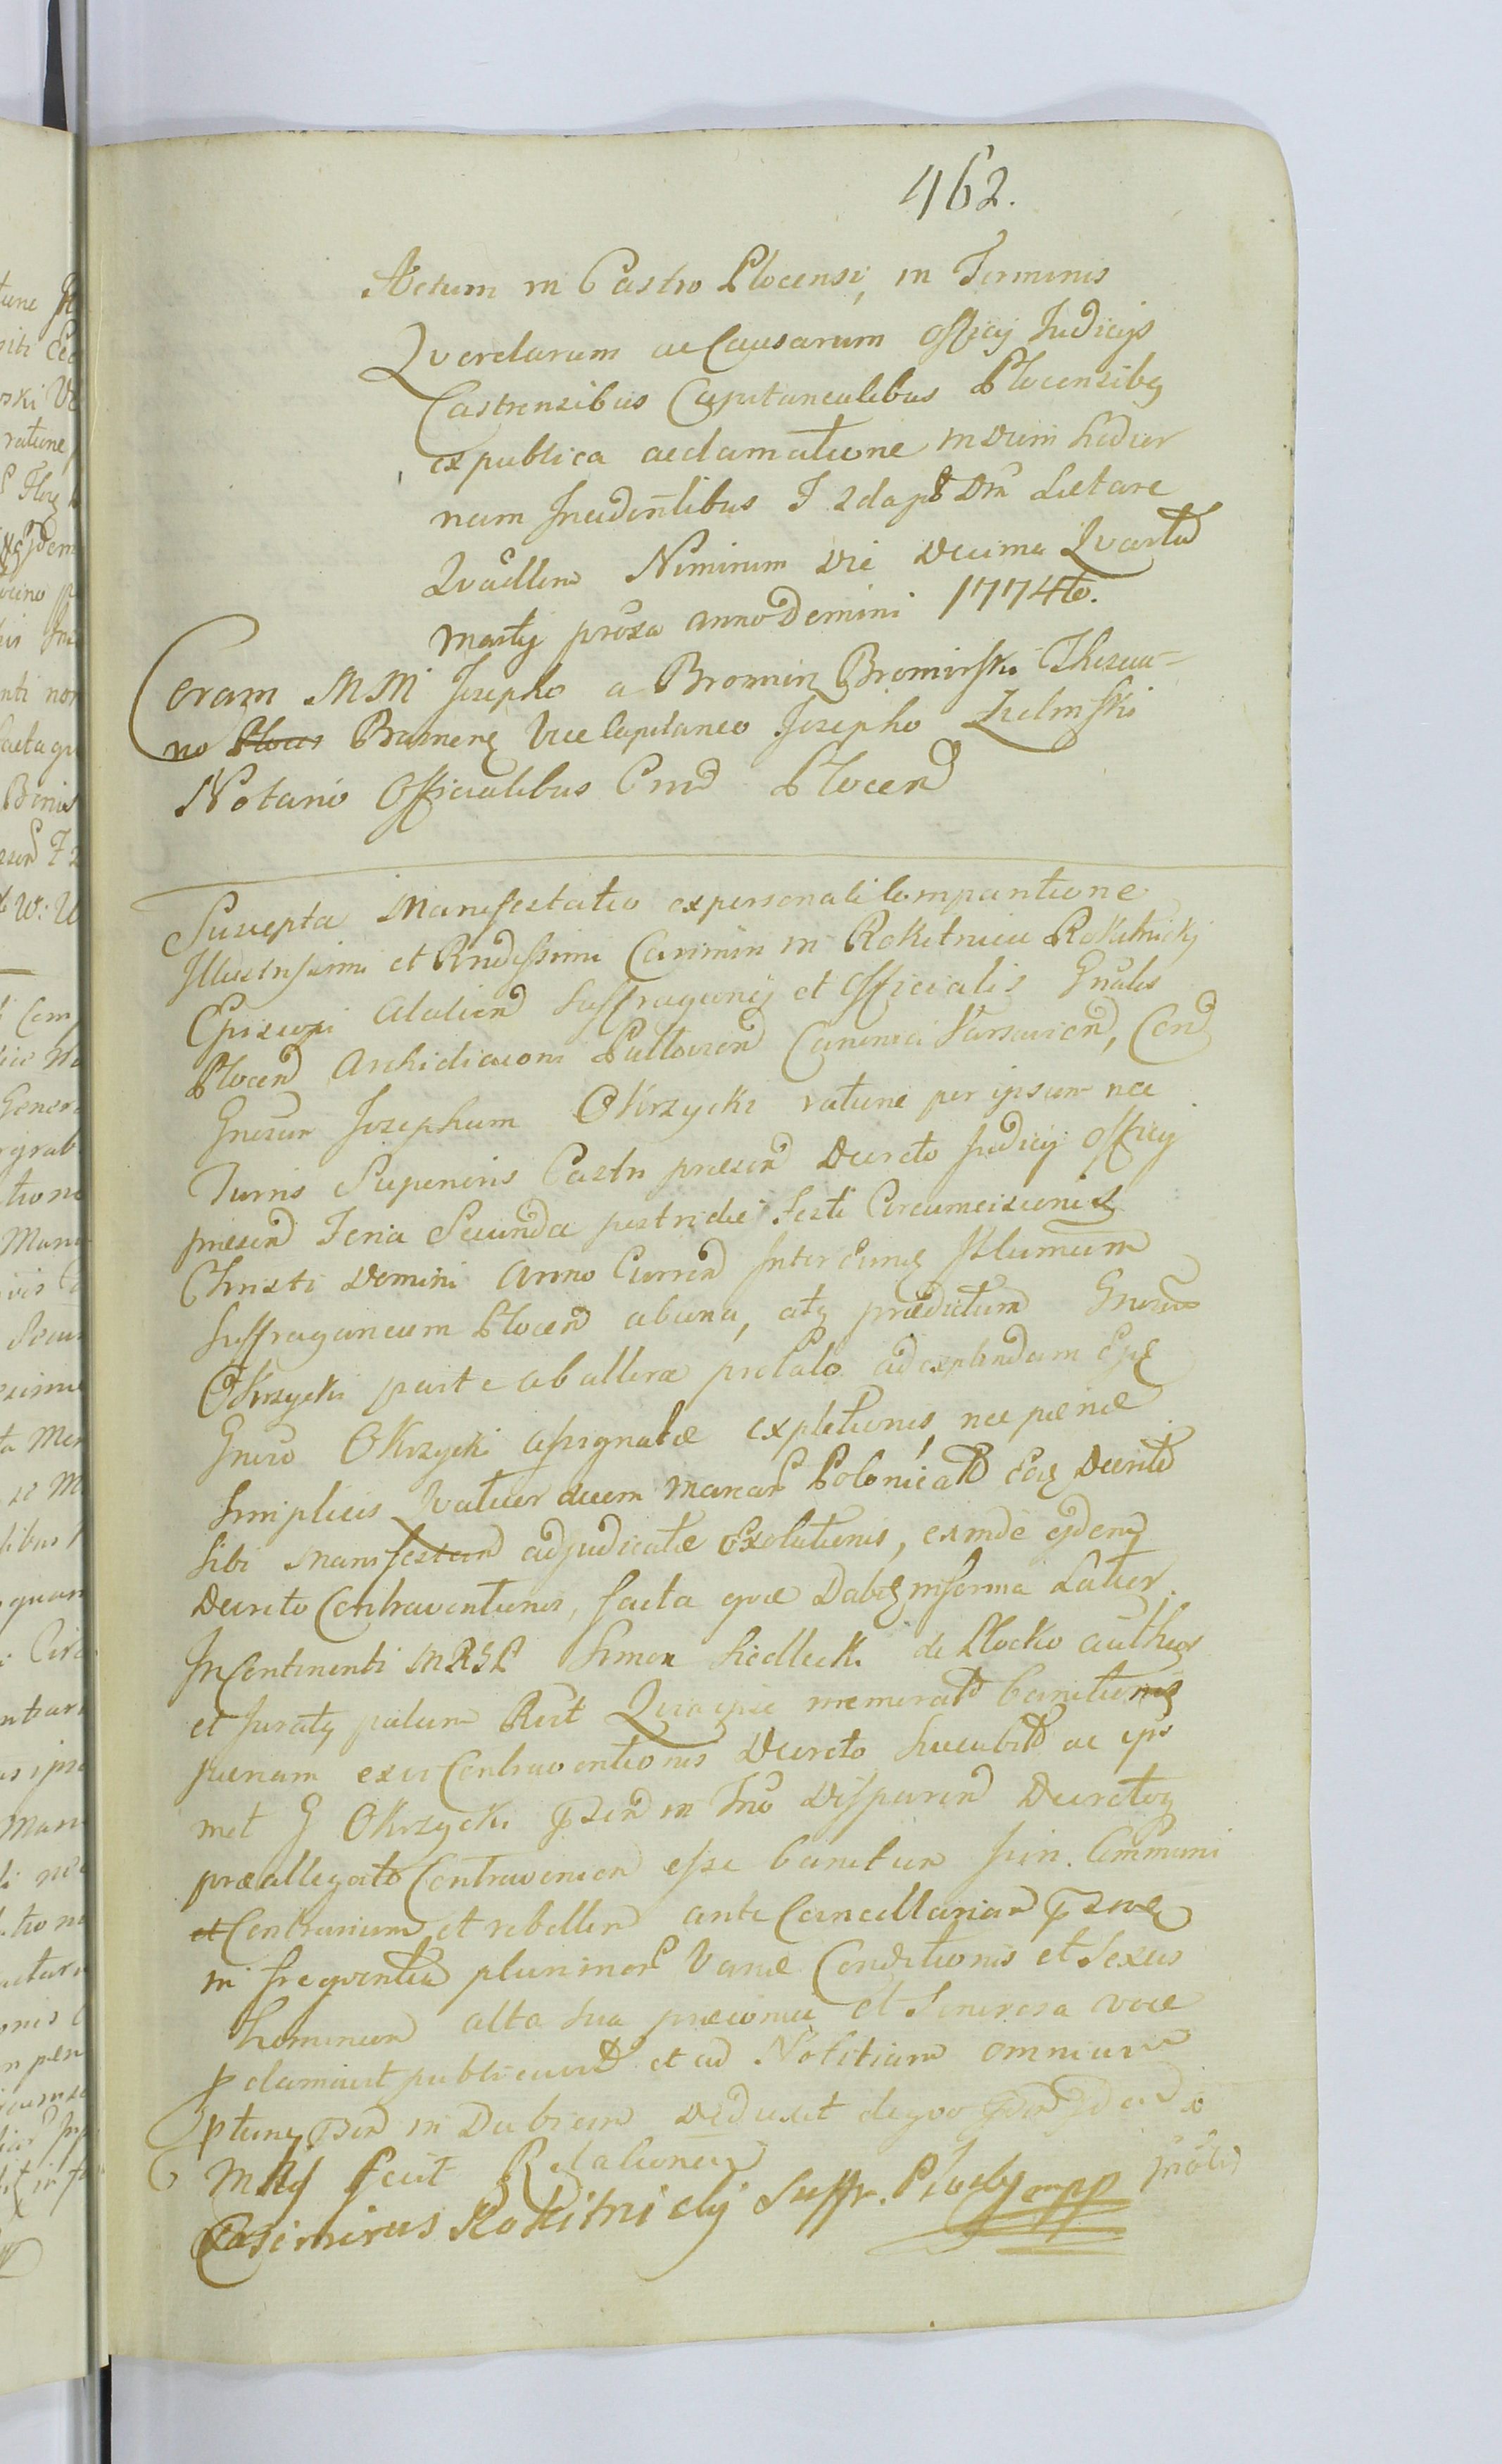 462.
Actum in Castro Plocensi, in Terminis
Querelarum ac Causarum officij Judicijs
Castrensibus Capitanealibus Plocensibq
ex publica acclamatione in diem hodier
nam Incidentibus F 2da pt Dm Laetare
Quadlem Nimirum die decima Quarta
martij proxa anno Domini 1774to.
Coram MM Josepho a Bromierz Bromirski Thesau-
no Plocen Vice Capitaneo Josepho Zielinski
Notario Officialibus Cind Plocen
Suscepta Manifestatio ex personali Comparitione
Illustrissimi et Rndissimi Casimiri in Rokitnica Rokitnickij
Episcopi Suffraganej et Officialis Gnalis
Plocen Archidiaconi Pultovien Canonici Varsavien, Con
Gnosum Josephum Okrzycki ratione per ipsum nec
Turris Superioris Castri praesen Decreto Judicij officij
praesen Feria Secunda postridie Festi Circumcisionis
Christi Domini Anno Curren Inter eumq Illumum
Suffraganeum Plocen ab una, atq praedictum Gnosum
Okrzycki parte ab altera prolato ad explendam
Gnoso Okrzycki assignatae expletionis, nec poenae
simplicis Quatuor decem Marcar Polonicat Eoq Decreto
sibi Manifestan adjudicatae exolutionis, exinde ejdem
Decreto Contraventionis, facta quae Dabq in forma Latior.
In Continenti MRGL Simon Siedlecki de Plocko authus
et Juratq palam Rect Quia ipse memorat banitionis
poenam ex vi Contraventionis Decreto Succubit ac ips
met G Okrzycki in Tno Disparen Decretoq
praeallegato Contravenien esse banitum Communi
et Contrarium et rebellem ante Cancellariam
in frequentia plurimor Variae Conditionis et Sexus
hominum alta sua praeconia et Sonorosa voce
pclamavit publicavit et ad Notitiam omnium
in Dubium deduxit de quo
fecit Relationem
Casimirus Rokitnickj Suffr. Plocky mpp